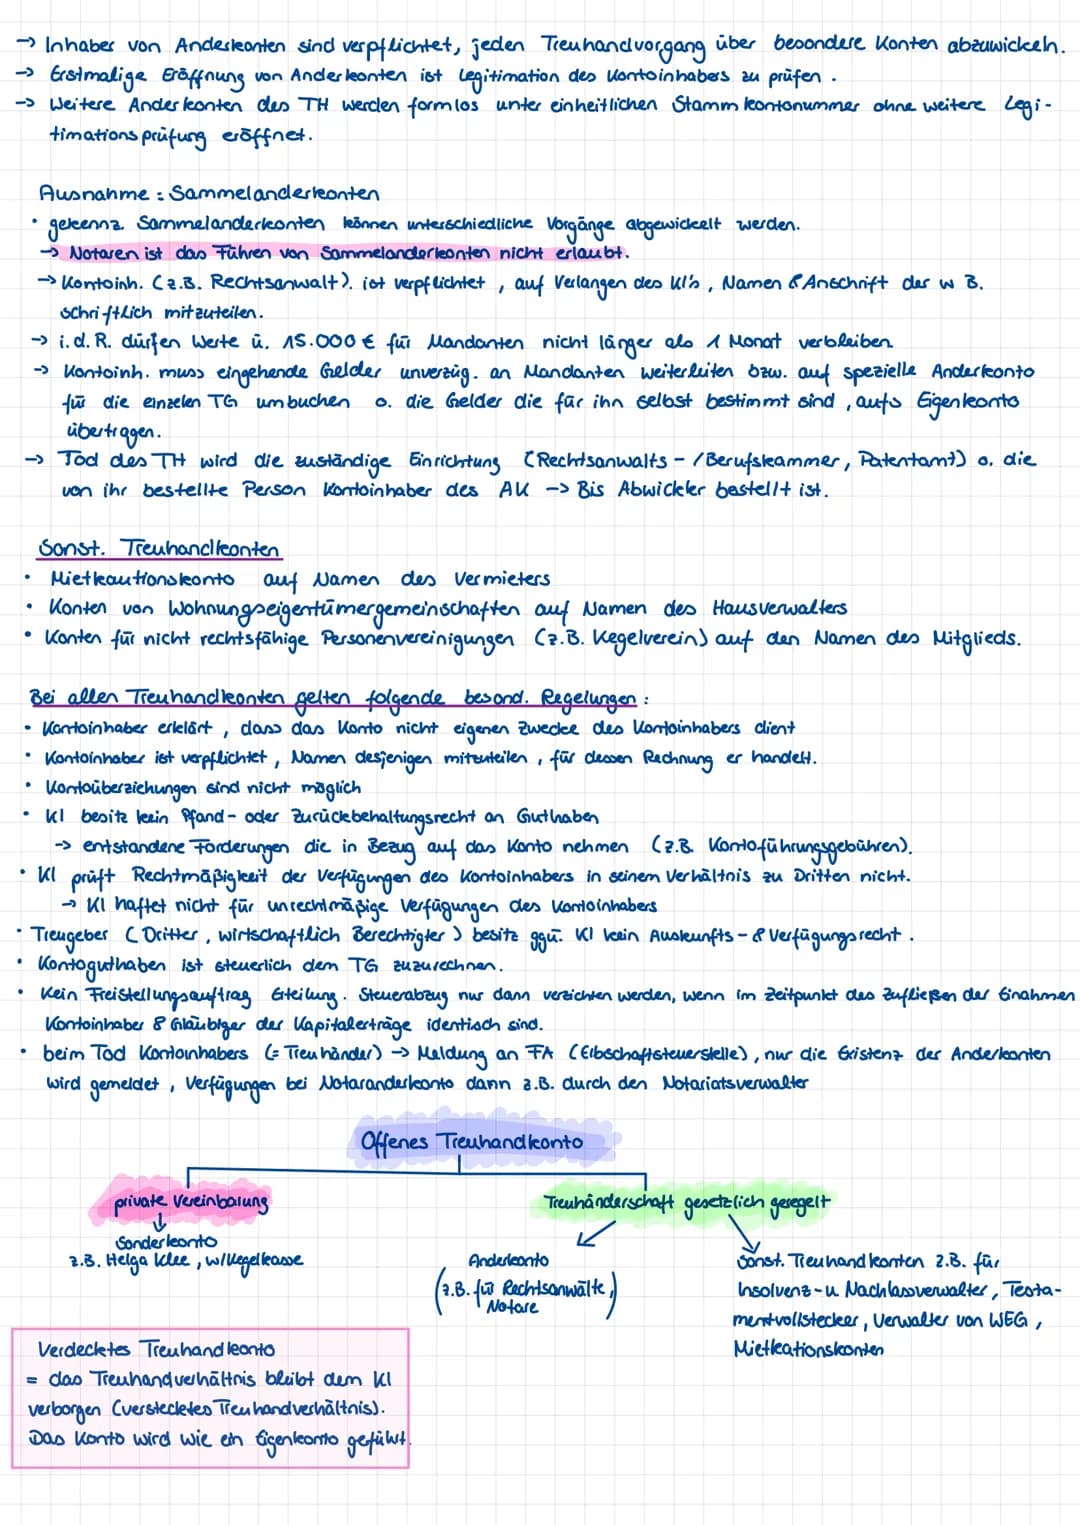 → Inhaber von Anderkonten sind verpflichtet, jeden Treuhandvorgang über besondere Konten abzuwickeln.
→ Erstmalige Eröffnung von Anderkonten ist Legitimation des Kontoinhabers zu prüfen.
→ Weitere Anderkonten des TH werden formlos unter einheitlichen Stammkontonummer ohne weitere Legi-
timationsprüfung eröffnet.
Ausnahme: Sammelanderkonten
• gekennz. Sammelanderkonten können unterschiedliche Vorgänge abgewickelt werden.
→ Notaren ist das Führen von Sammelanderkonten nicht erlaubt.
→ Kontoinh. (z.B. Rechtsanwalt). ist verpflichtet, auf Verlangen des KI's, Namen & Anschrift der w B.
schriftlich mitzuteilen.
→ i.d.R. dürfen Werte ü. 15.000 € für Mandanten nicht länger als 1 Monat verbleiben.
→ Kontoinh. muss eingehende Gelder unverzüg. an Mandanten weiterleiten bzw. auf spezielle Anderkonto
für die einzelen TG umbuchen o. die Gelder die für ihn selbst bestimmt sind, aufs Eigenkonto
übertragen.
→ Tod des TH wird die zuständige Einrichtung (Rechtsanwalts-/Berufskammer, Patentamt) o. die
von ihr bestellte Person Kontoinhaber des AK → Bis Abwickler bestellt ist.
Sonst. Treuhandkonten
• Mietkautionskonto auf Namen des Vermieters
• Konten von Wohnungseigentümergemeinschaften auf Namen des Hausverwalters
• Konten für nicht rechtsfähige Personenvereinigungen (z.B. Kegelverein) auf den Namen des Mitglieds.
Bei allen Treuhandkonten gelten folgende besond. Regelungen:
• Kontoinhaber erklärt, dass das Konto nicht eigenen Zwecke des Kontoinhabers dient
• Kontoinhaber ist verpflichtet, Namen desjenigen mitzuteilen, für dessen Rechnung er handelt.
• Kontoüberziehungen sind nicht möglich
• KI besitz kein Pfand- oder Zurückbehaltungsrecht an Guthaben
→ entstandene Forderungen die in Bezug auf das Konto nehmen (z.B. Kontoführungsgebühren).
• KI prüft Rechtmäßigkeit der Verfügungen des Kontoinhabers in seinem Verhältnis zu Dritten nicht.
→ KI haftet nicht für unrechtmäßige Verfügungen des Kontoinhabers
• Treugeber (Dritter, wirtschaftlich Berechtigter) besitz ggü. KI kein Auskunfts- & Verfügungsrecht.
• Kontoguthaben ist steuerlich dem TG zuzurechnen.
• Kein Freistellungsauftrag Erteilung. Steuerabzug nur dann verzichten werden, wenn im Zeitpunkt des Zufließen der Einahmen
Kontoinhaber & Gläubiger der Kapitalerträge identisch sind.
• beim Tod Kontoinhabers (= Treuhänder) → Meldung an FA (Erbschaftsteuerstelle), nur die Existenz der Anderkonten
wird gemeldet, Verfügungen bei Notaranderkonto dann z.B. durch den Notariatsverwalter
Offenes Treuhandkonto
private Vereinbarung
Treuhänderschaft gesetzlich geregelt
Sonderkonto
z.B. Helga Klee, w/Kegelkasse
Anderkonto
(z.B. für Rechtsanwälte,
Notare)
Sonst. Treuhandkonten z.B. für
Insolvenz- u Nachlassverwalter, Testa-
mentvollstecker, Verwalter von WEG,
Mietkationskonten
Verdecktes Treuhandkonto
= das Treuhandverhältnis bleibt dem KI
verborgen (verstecktes Treuhandverhältnis).
Das Konto wird wie ein Eigenkonto geführt.